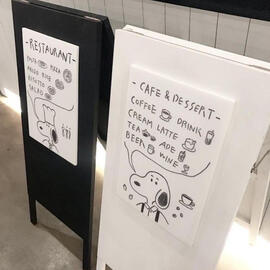 -RESTAURANT-
PASTA PIZZA
RICE
RISOTTO
SALAD
-CAFE & DESSERT-
COFFEE DRINK
CREAM LATTE
TEA ADE
BEER WINE